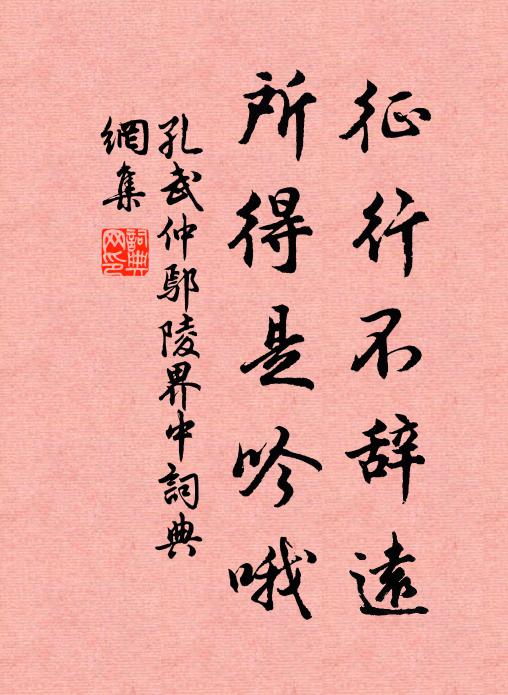 征行不辞遠
所得是吟哦
孔武仲鄢陵界中詞典
網集
詞典
网印